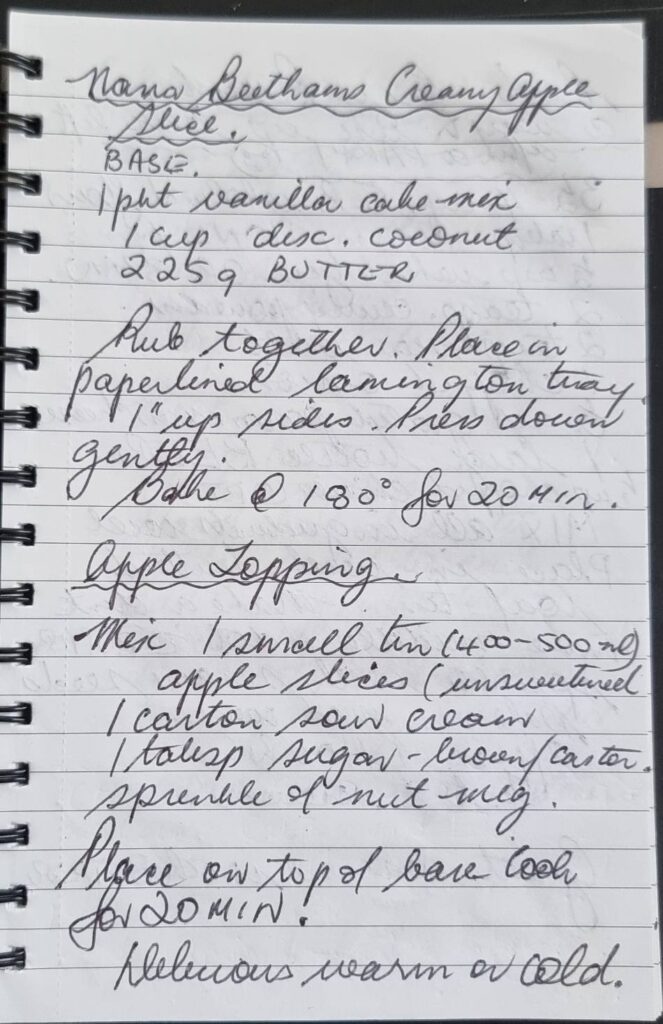 Nana Beethams Creamy Apple
Slice.
BASE.
1 pkt vanilla cake-mix
1 cup desc. coconut
225g BUTTER
Rub together. Place in
paperlined lamington tray.
1" up sides. Press down
gently.
Bake @ 180° for 20 MIN.
Apple Topping.
Mix 1 small tin (400-500ml)
apple slices (unsweetened
1 carton sour cream
1 tablsp sugar - brown/castor.
sprinkle of nut-meg.
Place on top of base Cook
for 20 MIN.
Delicious warm or cold.